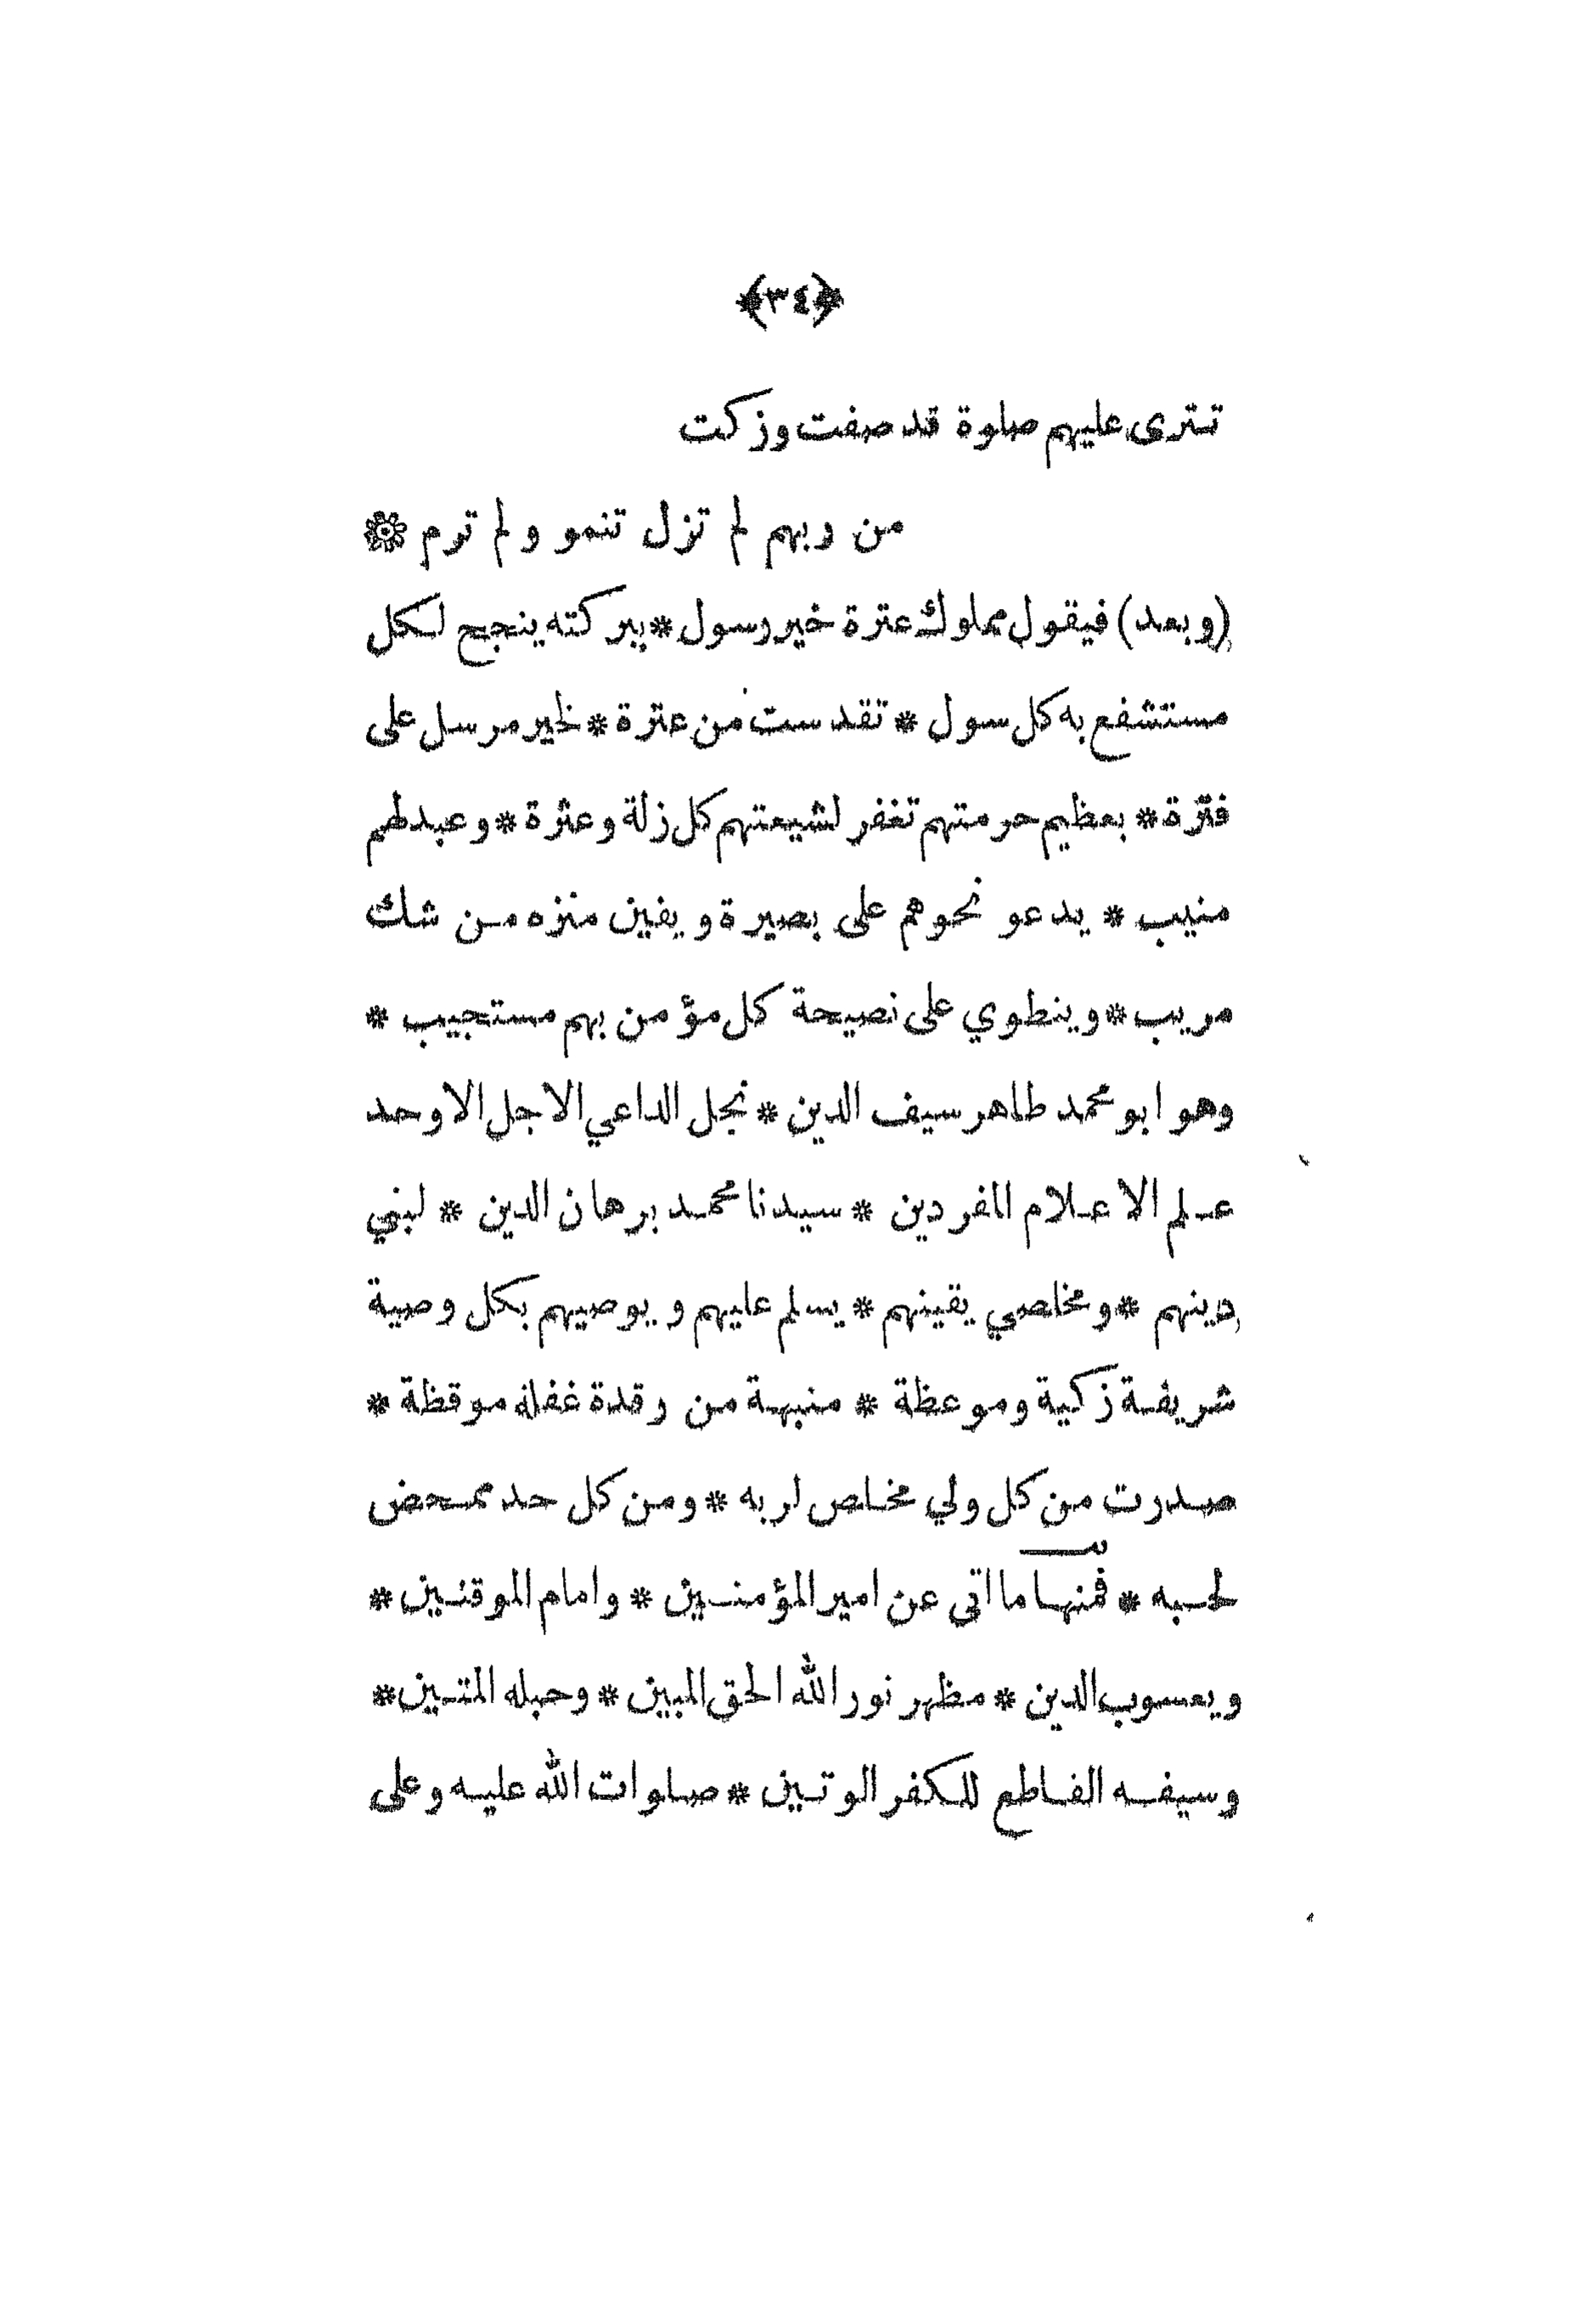 ﴿٣٤﴾
تترى عليهم صلوة قد صفت وزكت
من ربهم لم تزل تنمو ولم ترم ۞
(وبعد) فيقول مملوك عترة خير رسول * ببركته ينجح لكل
مستشفع به كل سول * تقدست من عترة * لخير مرسل على
فترة * بعظيم حرمتهم تغفر لشيعتهم كل زلة وعثرة * وعبد لهم
منيب * يدعو نحوهم على بصيرة ويقين منزه من شك
مريب * وينطوي على نصيحة كل مؤمن بهم مستجيب *
وهو ابو محمد طاهر سيف الدين * نجل الداعي الاجل الاوحد
علم الاعلام المفردين * سيدنا محمد برهان الدين * لبني
دينهم * ومخلصي يقينهم * يسلم عليهم ويوصيهم بكل وصية
شريفة زكية وموعظة * منبهة من رقدة غفلة موقظة *
صدرت من كل ولي مخلص لربه * ومن كل حد ممحض
لحبه * فمنها ما اتى عن امير المؤمنين * وامام الموقنين *
ويعسوب الدين * مظهر نور الله الحق المبين * وحبله المتين *
وسيفه القاطع للكفر الوتين * صلوات الله عليه وعلى